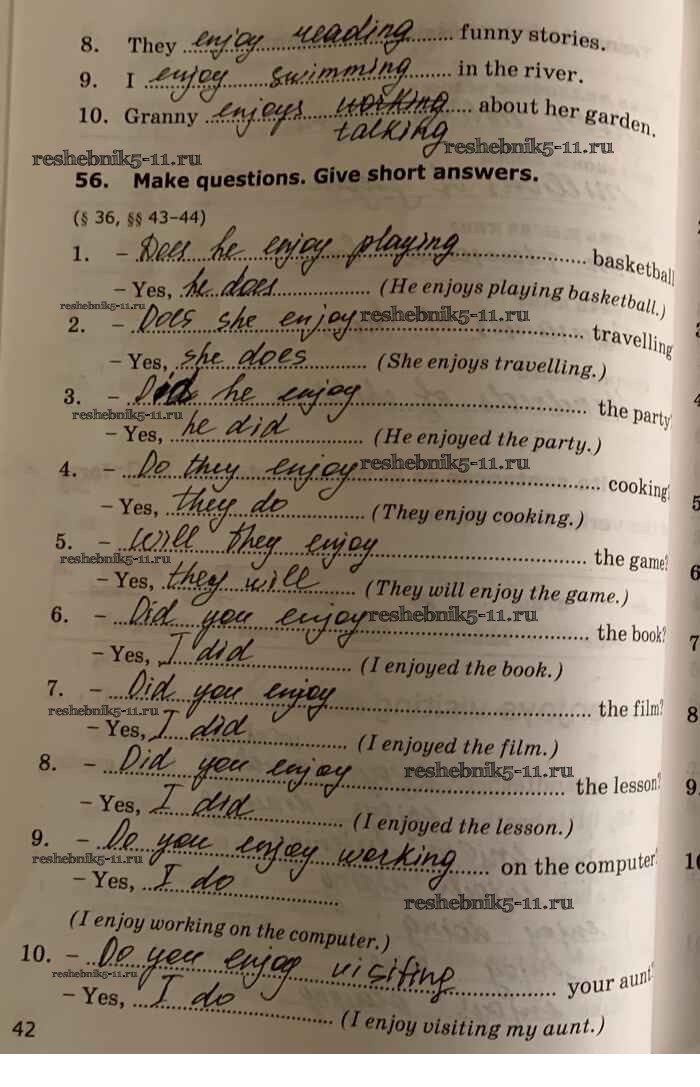 8. They enjoy reading funny stories.
9. I enjoy swimming in the river.
10. Granny enjoys working about her garden.
talking
reshebnik5-11.ru reshebnik5-11.ru
56. Make questions. Give short answers.
(§ 36, §§ 43–44)
1. – Does he enjoy playing basketball
– Yes, he does (He enjoys playing basketball.)
reshebnik5-11.ru
2. – Does she enjoy reshebnik5-11.ru travelling
– Yes, she does (She enjoys travelling.)
3. – Did he enjoy the party?
reshebnik5-11.ru
– Yes, he did (He enjoyed the party.)
4. – Do they enjoy reshebnik5-11.ru cooking?
– Yes, they do (They enjoy cooking.)
5. – Will they enjoy the game?
reshebnik5-11.ru
– Yes, they will (They will enjoy the game.)
6. – Did you enjoy reshebnik5-11.ru the book?
– Yes, I did (I enjoyed the book.)
7. – Did you enjoy the film?
reshebnik5-11.ru
– Yes, I did (I enjoyed the film.)
8. – Did you enjoy reshebnik5-11.ru the lesson?
– Yes, I did (I enjoyed the lesson.)
9. – Do you enjoy working on the computer?
reshebnik5-11.ru
– Yes, I do reshebnik5-11.ru
(I enjoy working on the computer.)
10. – Do you enjoy visiting your aunt?
reshebnik5-11.ru
– Yes, I do (I enjoy visiting my aunt.)
42
5
6
7
8
9.